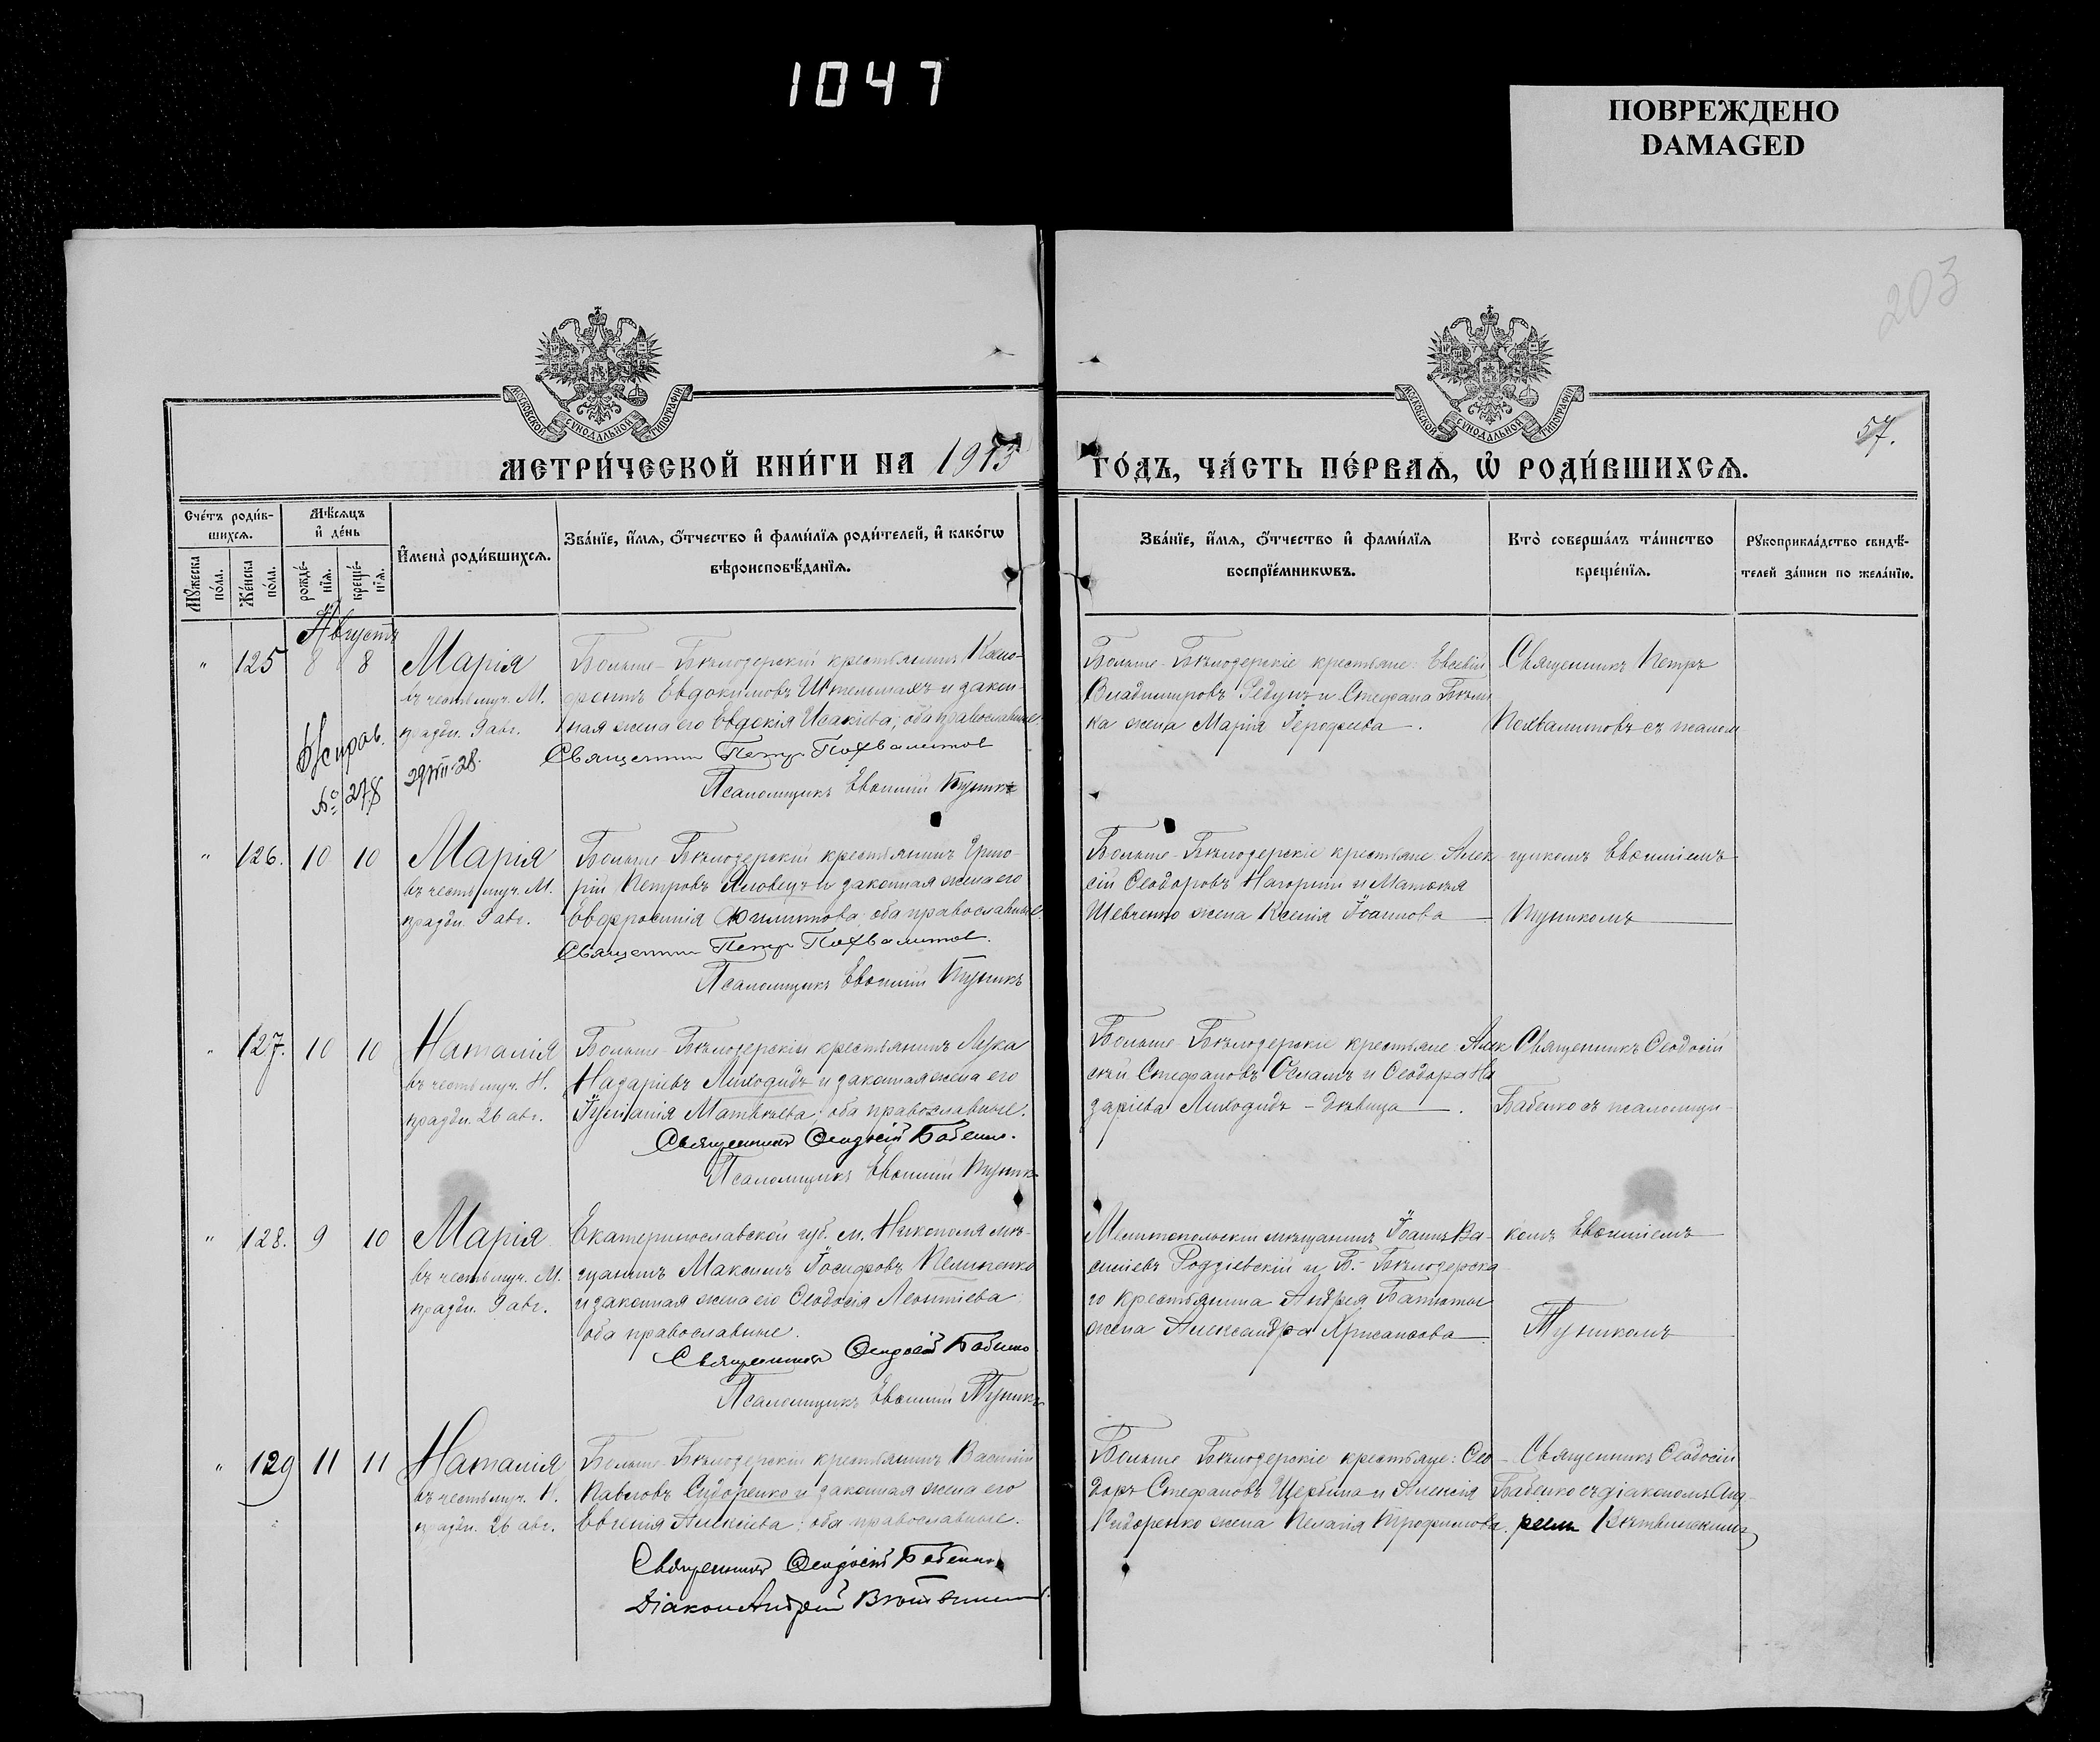 1047
ПОВРЕЖДЕНО
DAMAGED
203
57.
МОСКОВСКОЙ СѴНОДАЛЬНОЙ ТИПОГРАФІИ
МОСКОВСКОЙ СѴНОДАЛЬНОЙ ТИПОГРАФІИ
МЕТРИ́ЧЕСКОЙ КНИ́ГИ НА 1913
ГО́ДЪ, ЧА́СТЬ ПЕ́РВАѦ, Ѡ РОДИ́ВШИХСѦ.
Сче́тъ роди́в-
шихсѧ.
Мѣ́сѧцъ
и҆ де́нь
Мꙋ́жеска по́ла.
Же́нска по́ла.
рожде́-
нїѧ.
креще́-
нїѧ.
И҆мена̀ роди́вшихсѧ.
Зва́нїе, и҆́мѧ, ѻ҆́тчество и҆ фами́лїѧ роди́телей, и҆ како́гѡ
вѣроисповѣ́данїѧ.
Зва́нїе, и҆́мѧ, ѻ҆́тчество и҆ фами́лїѧ
воспрїе́мникѡвъ.
Кто̀ соверша́лъ та́инство
креще́нїѧ.
Рꙋкоприкла́дство свидѣ́-
телей за́писи по жела́нїю.
Августъ
" 125 8 8 Марія
въ честь муч. М.
праздн. 9 авг.
№ 278
29/VIII-28.
Больше-Бѣлозерскій крестьянинъ
Евдокимовъ Штельмахъ и закон-
ная жена его Евдокія Исакіева, оба православные.
Священникъ Петръ Похвалитовъ
Псаломщикъ Евѳимій Тупикъ
Больше-Бѣлозерскіе крестьяне: Евсевій
Владимировъ Редунъ и Стефана Бѣли-
ка жена Марія Іероѳеева.
Священникъ Петръ
Похвалитовъ съ псалом
" 126. 10 10 Марія
въ честь муч. М.
праздн. 9 авг.
Больше-Бѣлозерскій крестьянинъ Григо-
рій Петровъ Яловецъ и законная жена его
Евфросинія Филиппова, оба православные.
Священникъ Петръ Похвалитовъ.
Псаломщикъ Евѳимій Тупикъ
Больше-Бѣлозерскіе крестьяне: Алек
сій Ѳеодоровъ Нагорний и Матѳея
Шевченко жена Ксенія Іоаннова
щикомъ Евѳиміемъ
Тупикомъ
" 127. 10 10 Наталія
въ честь муч. Н.
праздн. 26 авг.
Больше-Бѣлозерскій крестьянинъ Лука
Назаріевъ Лиходидъ и законная жена его
Іуліанія Матвѣева, оба православные.
Священникъ Ѳеодосій Бабенко.
Псаломщикъ Евѳимій Тупикъ
Больше-Бѣлозерскіе крестьяне: Алек
сѣй Стефановъ Осламъ и Ѳеодора На
заріева Лиходидъ – дѣвица.
Священникъ Ѳеодосій
Бабенко съ псаломщи-
" 128. 9 10 Марія
въ честь муч. М.
праздн. 9 авг.
Екатеринославской губ. м. Никополя мѣ-
щанинъ Максимъ Іосифовъ Пелипенко
и законная жена его Ѳеодосія Леонтіева
оба православные.
Священникъ Ѳеодосій Бабенко
Псаломщикъ Евѳимій Тупикъ
Мелитопольскій мѣщанинъ Іоаннъ Ва-
силіевъ Родзіевскій и Б.-Бѣлозерска
го крестьянина Андрея Батюты
жена Александра Хрисанѳова
комъ Евѳиміемъ
Тупикомъ
" 129 11 11 Наталія
въ честь муч. Н.
праздн. 26 авг.
Больше-Бѣлозерскій крестьянинъ Василій
Павловъ Сидоренко и законная жена его
Евгенія Алексіева, оба православные.
Священникъ Ѳеодосій Бабенко
Діаконъ Андрей
Больше-Бѣлозерскіе крестьяне: Ѳео-
доръ Стефановъ Щербина и Алексія
Сидоренко жена Пелагія Трофимова.
Священникъ Ѳеодосій
Бабенко съ діакономъ Анд-
реемъ